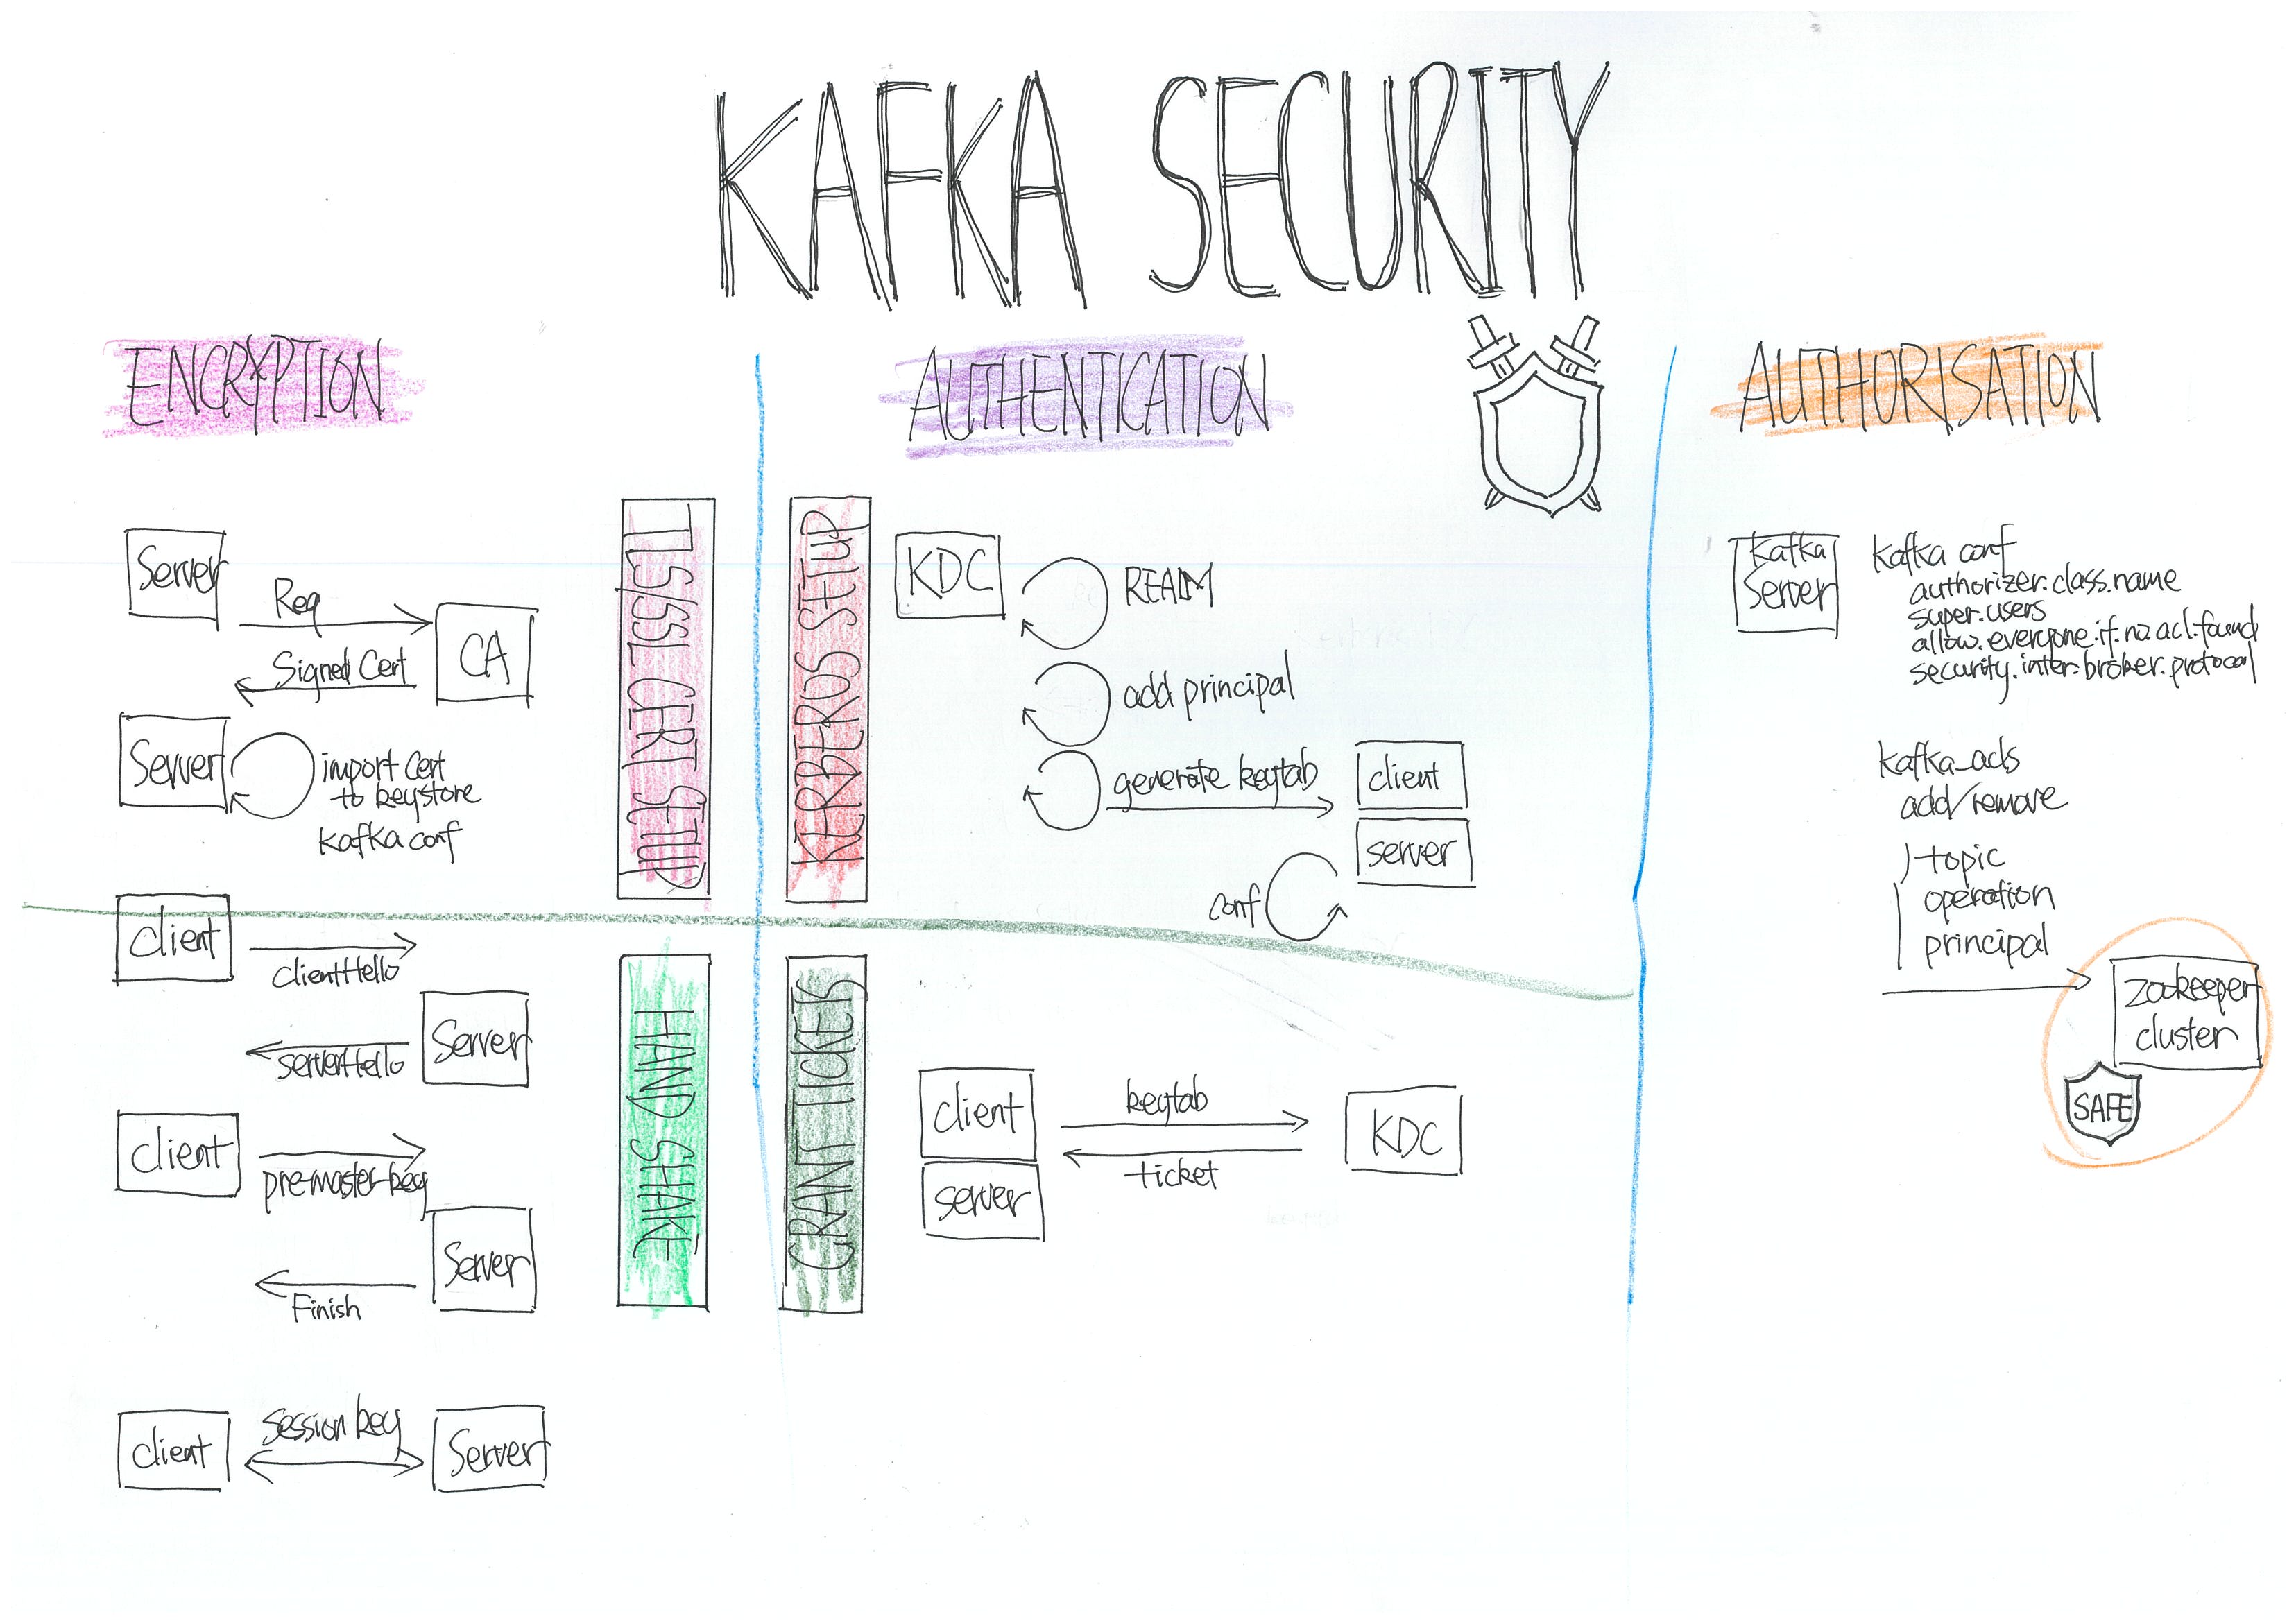 KAFKA SECURITY
ENCRYPTION
Server
Req
CA
Signed Cert
Server
import cert
to keystore
kafka conf
TLS/SSL CERT SETUP
client
clientHello
Server
serverHello
client
pre-master-key
Server
Finish
client
session key
Server
HAND SHAKE
AUTHENTICATION
KERBEROS SETUP
KDC
REALM
add principal
generate keytab
client
server
conf
GRANT TICKETS
client
server
keytab
ticket
KDC
AUTHORISATION
Kafka
Server
kafka conf
authorizer.class.name
super.users
allow.everyone.if.no.acl.found
security.inter.broker.protocal
kafka_acls
add/remove
topic
operation
principal
zookeeper
cluster
SAFE